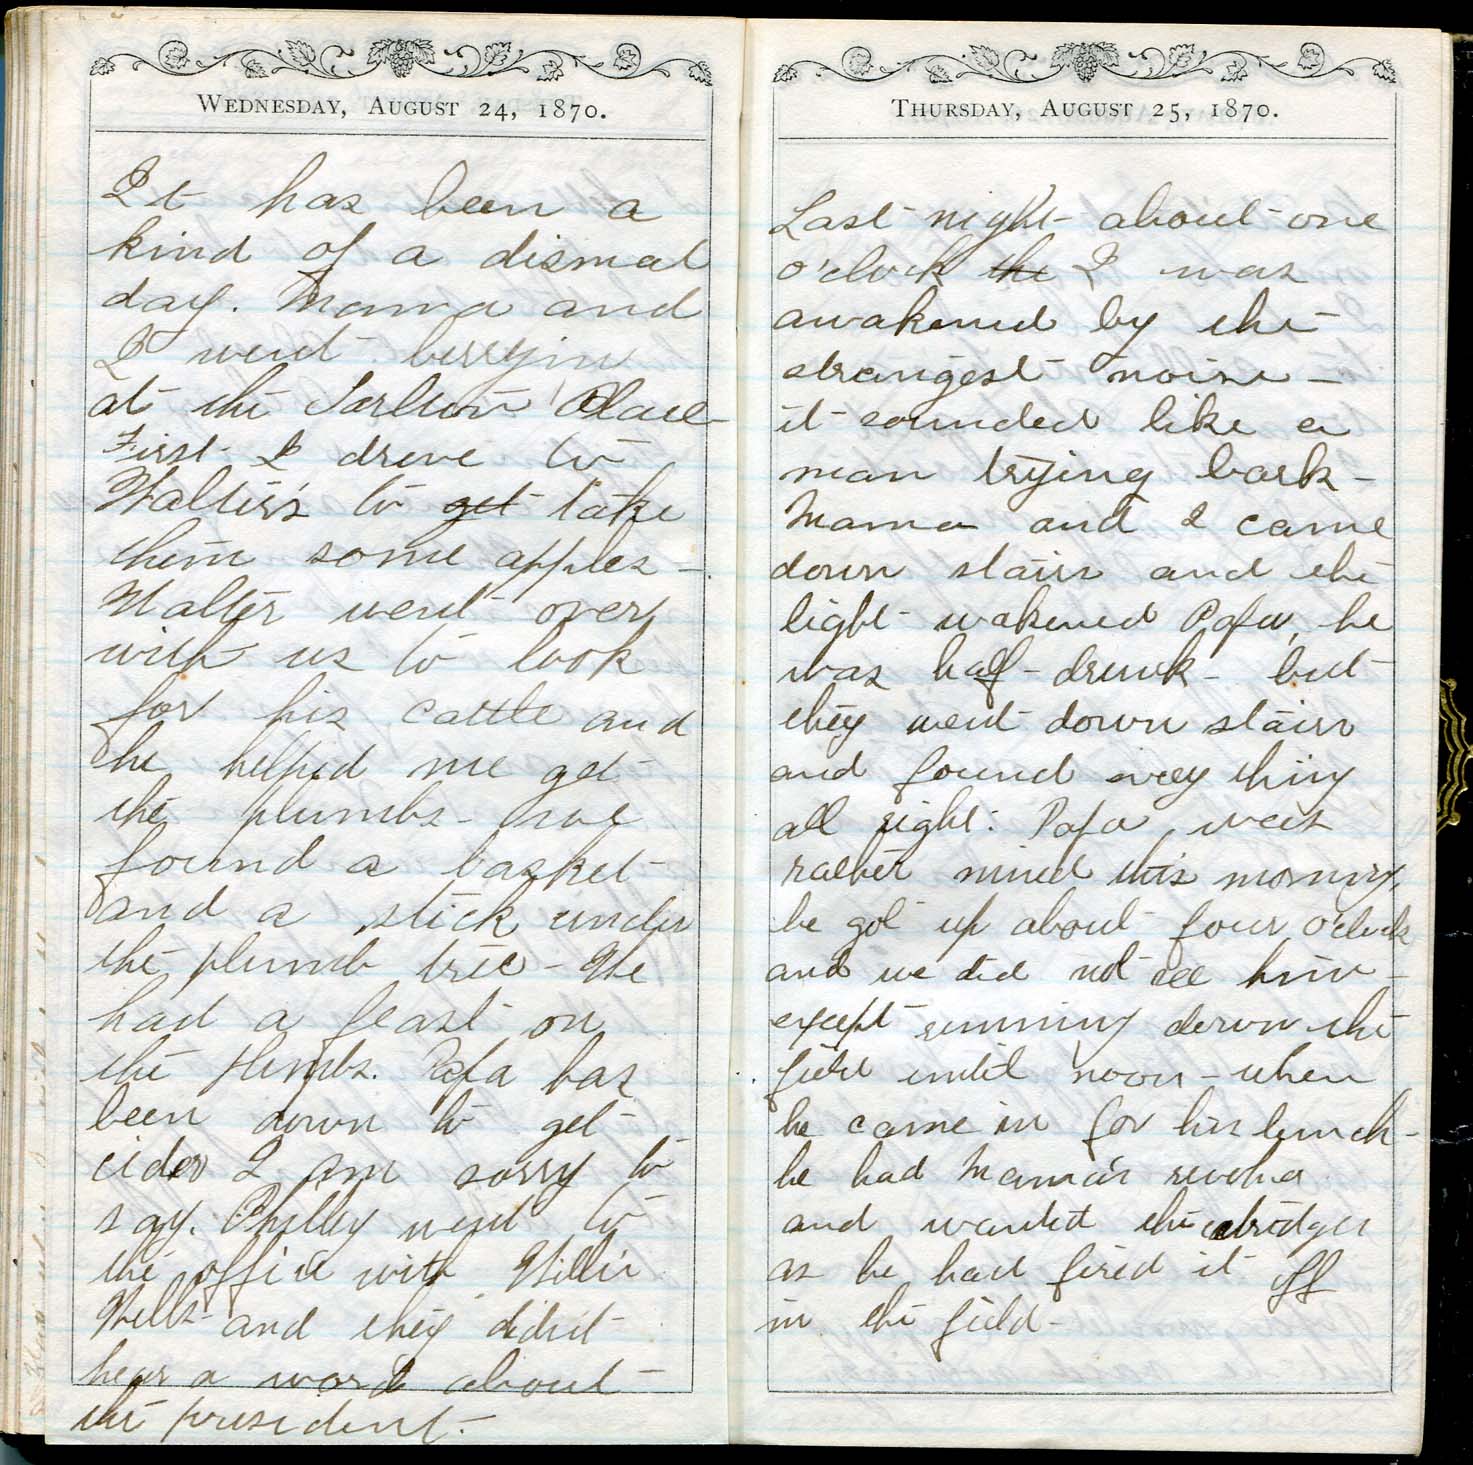 WEDNESDAY, AUGUST 24, 1870.
It has been a
kind of a dismal
day. Mama and
I went berryin
at the Place
First I drove to
Walter's to get take
them some apples –
Walter went over
with us to look
for his cattle and
he helped me get
the plumbs – we
found a basket
and a stick under
the plumb tree – We
had a feast on
the plumbs. Papa has
been down to get
cider I am sorry to
say. Philly went to
the office with Willie
Wells and they didnt
hear a word about
the president. –
THURSDAY, AUGUST 25, 1870.
Last night about one
o'clock the I was
awakened by the
strangest noise –
it sounded like a
man trying bark –
Mama and I came
down stairs and the
light wakened Papa, he
was half – drunk – but
they went down stairs
and found every thing
all right. Papa was
rather this morning,
he got up about four o'clock
and we did not see him –
except running down the
field until noon – when
he came in for his lunch –
he had Mama's revolver
and wanted the
as he had fired it off
in the field –